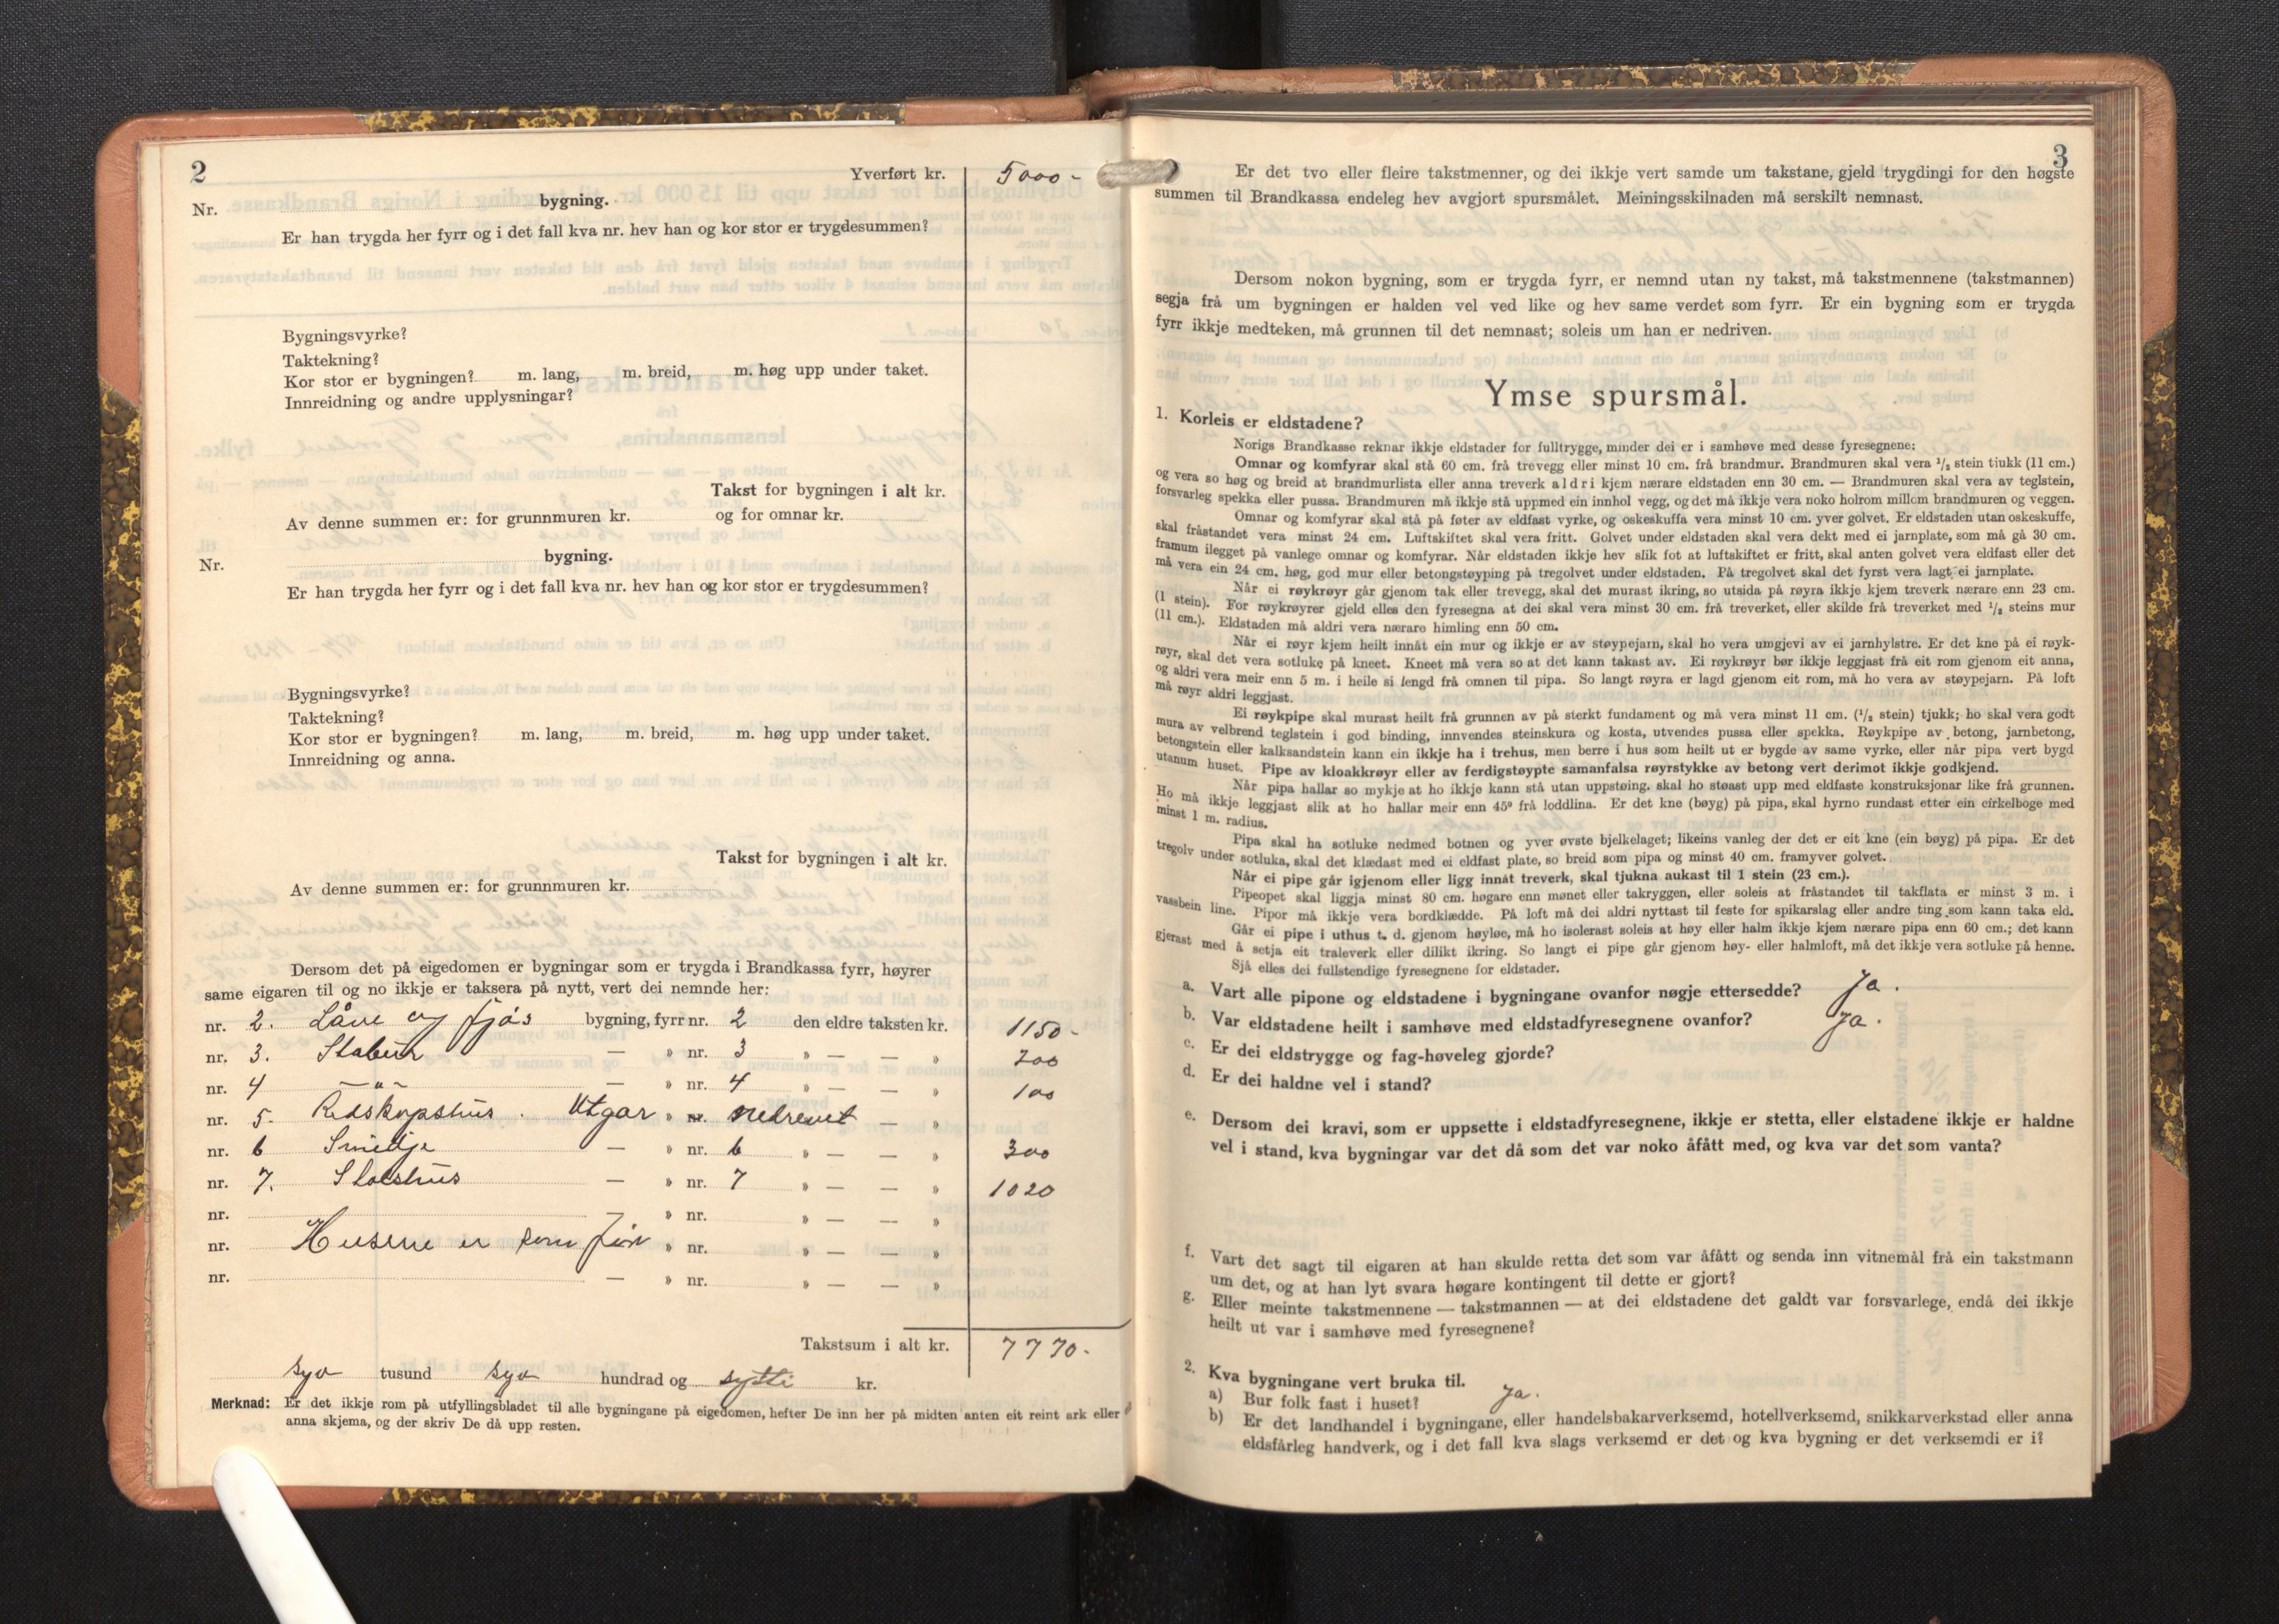 2
Yverført kr. 5000-
Nr. bygning.
Er han trygda her fyrr og i det fall kva nr. hev han og kor stor er trygdesummen?
Bygningsvyrke?
Taktekning?
Kor stor er bygningen? m. lang, m. breid, m. høg upp under taket.
Innreidning og andre upplysningar?
Takst for bygningen i alt kr.
Av denne summen er: for grunnmuren kr. og for omnar kr.
Nr. bygning.
Er han trygda her fyrr og i det fall kva nr. hev han og kor stor er trygdesummen?
Bygningsvyrke?
Taktekning?
Kor stor er bygningen? m. lang, m. breid, m. høg upp under taket.
Innreidning og anna.
Takst for bygningen i alt kr.
Av denne summen er: for grunnmuren kr.
Dersom det på eigedomen er bygningar som er trygda i Brandkassa fyrr, høyrer
same eigaren til og no ikkje er taksera på nytt, vert dei nemnde her:
nr. 2. Låve og fjøs bygning, fyrr nr. 2 den eldre taksten kr. 1150-
nr. 3. Stabur — » nr. 3 » — — » 200
nr. 4 —"— — » nr. 4 » — — » 100
nr. 5. Redskapshus. Utgår » nr. nedrevet — »
nr. 6 Smidje — » nr. 6 » — — » 300
nr. 7. Stølshus — » nr. 7 » — — » 1020
nr. — » nr. » — — »
nr. Husene er som før » nr. » — — »
nr. — » nr. » — — »
Takstsum i alt kr. 7770-
syv tusund syv hundrad og sytti kr.
Merknad: Er det ikkje rom på utfyllingsbladet til alle bygningane på eigedomen, hefter De inn her på midten anten eit reint ark eller
anna skjema, og der skriv De då upp resten.
3
Er det tvo eller fleire takstmenner, og dei ikkje vert samde um takstane, gjeld trygdingi for den høgste
summen til Brandkassa endeleg hev avgjort spursmålet. Meiningsskilnaden må serskilt nemnast.
Dersom nokon bygning, som er trygda fyrr, er nemnd utan ny takst, må takstmennene (takstmannen)
segja frå um bygningen er halden vel ved like og hev same verdet som fyrr. Er ein bygning som er trygda
fyrr ikkje medteken, må grunnen til det nemnast; soleis um han er nedriven.
Ymse spursmål.
1. Korleis er eldstadene?
Norigs Brandkasse reknar ikkje eldstader for fulltrygge, minder dei er i samhøve med desse fyresegnene:
Omnar og komfyrar skal stå 60 cm. frå trevegg eller minst 10 cm. frå brandmur. Brandmuren skal vera ½ stein tjukk (11 cm.)
og vera so høg og breid at brandmurlista eller anna treverk aldri kjem nærare eldstaden enn 30 cm. — Brandmuren skal vera av teglstein,
forsvarleg spekka eller pussa. Brandmuren må ikkje stå uppmed ein innhol vegg, og det må ikkje vera noko holrom millom brandmuren og veggen.
Omnar og komfyrar skal stå på føter av eldfast vyrke, og oskeskuffa vera minst 10 cm. yver golvet. Er eldstaden utan oskeskuffe,
skal fråstandet vera minst 24 cm. Luftskiftet skal vera fritt. Golvet under eldstaden skal vera dekt med ei jarnplate, som må gå 30 cm.
framum ilegget på vanlege omnar og komfyrar. Når eldstaden ikkje hev slik fot at luftskiftet er fritt, skal anten golvet vera eldfast eller det
må vera ein 24 cm. høg, god mur eller betongstøyping på tregolvet under eldstaden. På tregolvet skal det fyrst vera lagt ei jarnplate.
Når ei røykrøyr går gjenom tak eller trevegg, skal det murast ikring, so utsida på røyra ikkje kjem treverk nærare enn 23 cm.
(1 stein). For røykrøyrer gjeld elles den fyresegna at dei skal vera minst 30 cm. frå treverket, eller skilde frå treverket med ½ steins mur
(11 cm.). Eldstaden må aldri vera nærare himling enn 50 cm.
Når ei røyr kjem heilt innåt ein mur og ikkje er av støypejarn, skal ho vera umgjevi av ei jarnhylstre. Er det kne på ei røyk-
røyr, skal det vera sotluke på kneet. Kneet må vera so at det kann takast av. Ei røykrøyr bør ikkje leggjast frå eit rom gjenom eit anna,
og aldri vera meir enn 5 m. i heile si lengd frå omnen til pipa. So langt røyra er lagd gjenom eit rom, må ho vera av støypejarn. På loft
må røyr aldri leggjast.
Ei røykpipe skal murast heilt frå grunnen av på sterkt fundament og må vera minst 11 cm. (½ stein) tjukk; ho skal vera godt
mura av velbrend teglstein i god binding, innvendes steinskura og kosta, utvendes pussa eller spekka. Røykpipe av betong, jarnbetong,
betongstein eller kalksandstein kann ein ikkje ha i trehus, men berre i hus som heilt ut er bygde av same vyrke, eller når pipa vert bygd
utanum huset. Pipe av kloakkrøyr eller av ferdigstøypte samanfalsa røyrstykke av betong vert derimot ikkje godkjend.
Når pipa hallar so mykje at ho ikkje kann stå utan uppstøing, skal ho støast upp med eldfaste konstruksjonar like frå grunnen.
Ho må ikkje leggjast slik at ho hallar meir enn 45° frå loddlina. Er det kne (bøyg) på pipa, skal hyrno rundast etter ein cirkelboge med
minst 1 m. radius.
Pipa skal ha sotluke nedmed botnen og yver øvste bjelkelaget; likeins vanleg der det er eit kne (ein bøyg) på pipa. Er det
tregolv under sotluka, skal det klædast med ei eldfast plate, so breid som pipa og minst 40 cm. framyver golvet.
Når ei pipe går igjenom eller ligg innåt treverk, skal tjukna aukast til 1 stein (23 cm.).
Pipeopet skal liggja minst 80 cm. høgare enn mønet eller takryggen, eller soleis at fråstandet til takflata er minst 3 m. i
vassbein line. Pipor må ikkje vera bordklædde. På loft må dei aldri nyttast til feste for spikarslag eller andre ting som kann taka eld.
Går ei pipe i uthus t. d. gjenom høyløe, må ho isolerast soleis at høy eller halm ikkje kjem nærare pipa enn 60 cm.; det kann
gjerast med å setja eit traleverk eller dilikt ikring. So langt ei pipe går gjenom høy- eller halmloft, må det ikkje vera sotluke på henne.
Sjå elles dei fullstendige fyresegnene for eldstader.
a. Vart alle pipone og eldstadene i bygningane ovanfor nøgje ettersedde? Ja.
b. Var eldstadene heilt i samhøve med eldstadfyresegnene ovanfor? Ja.
c. Er dei eldstrygge og fag-høveleg gjorde?
d. Er dei haldne vel i stand?
e. Dersom dei kravi, som er uppsette i eldstadfyresegnene, ikkje er stetta, eller elstadene ikkje er haldne
vel i stand, kva bygningar var det då som det var noko åfått med, og kva var det som vanta?
f. Vart det sagt til eigaren at han skulde retta det som var åfått og senda inn vitnemål frå ein takstmann
um det, og at han lyt svara høgare kontingent til dette er gjort?
g. Eller meinte takstmennene — takstmannen — at dei eldstadene det galdt var forsvarlege, endå dei ikkje
heilt ut var i samhøve med fyresegnene?
2. Kva bygningane vert bruka til.
a) Bur folk fast i huset? Ja.
b) Er det landhandel i bygningane, eller handelsbakarverksemd, hotellverksemd, snikkarverkstad eller anna
eldsfårleg handverk, og i det fall kva slags verksemd er det og kva bygning er det verksemdi er i?